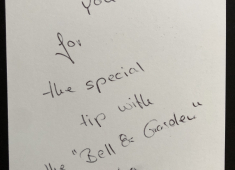 you
for
the special
tip with
the "Bell & Garden"